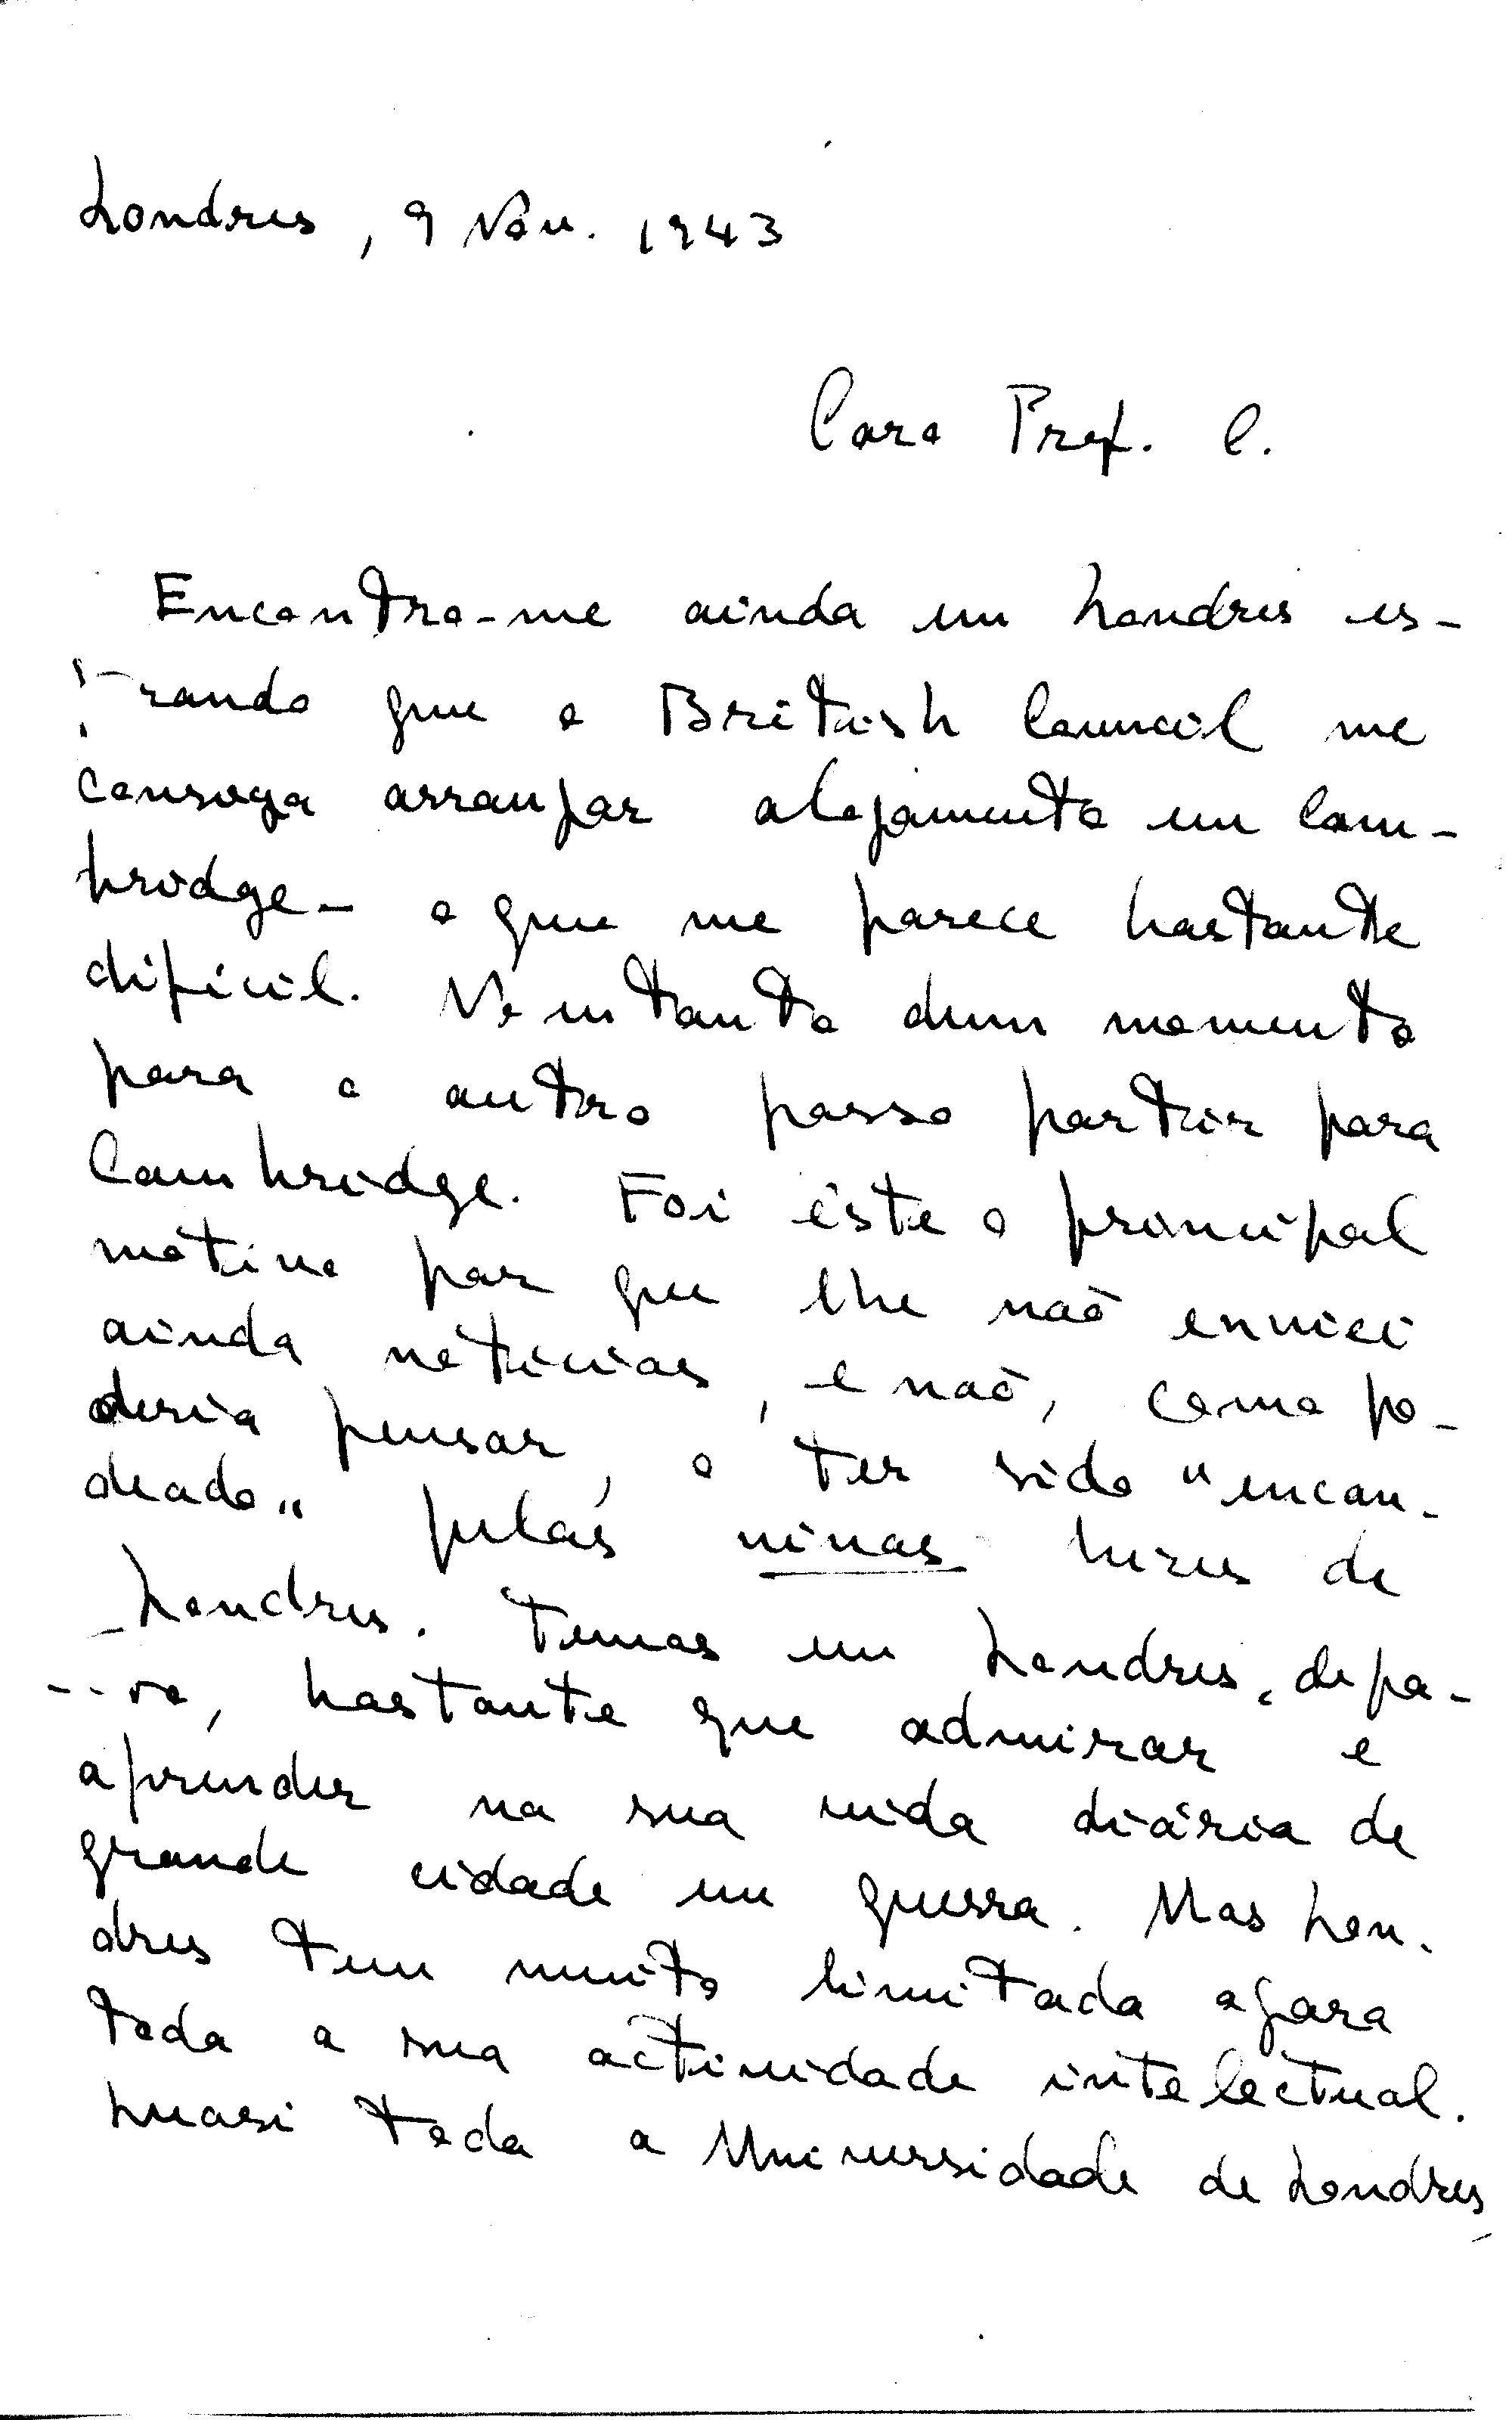 Londres, 9 Nov. 1943
Caro Prof. C.
Encontro-me ainda em Londres es-
rando que o British Council me
consiga arranjar alojamento em Cam-
bridge - o que me parece bastante
difícil. No entanto dum momento
para o outro posso partir para
Cambridge. Foi êste o principal
motivo por que lhe não enviei
ainda notícias, e não, como po-
deria pensar, o ter sido "encan-
deado" pelas vivas luzes de
Londres. Temos em Londres, de pa-
ro, bastante que admirar e
aprender na sua vida diária de
grande cidade em guerra. Mas Lon-
dres tem muito limitada agora
toda a sua actividade intelectual.
Quasi toda a Universidade de Londres